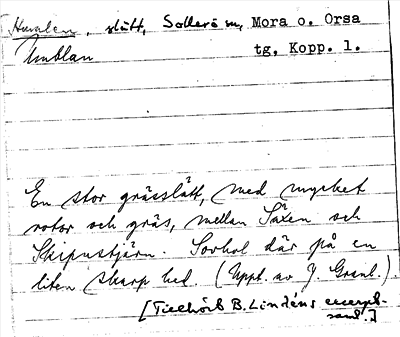 slått, Sollerö sn, Mora o. Orsa
Umblan tg, Kopp. l.
En stor grässlått, med mycket
rotor och gräs, mellan Säxen och
Skipustjärn. Sovhol där på en
liten skarp hed. (Uppt. av J. Granl.).
[Tillhör B. Lindéns excerpt-
saml.]